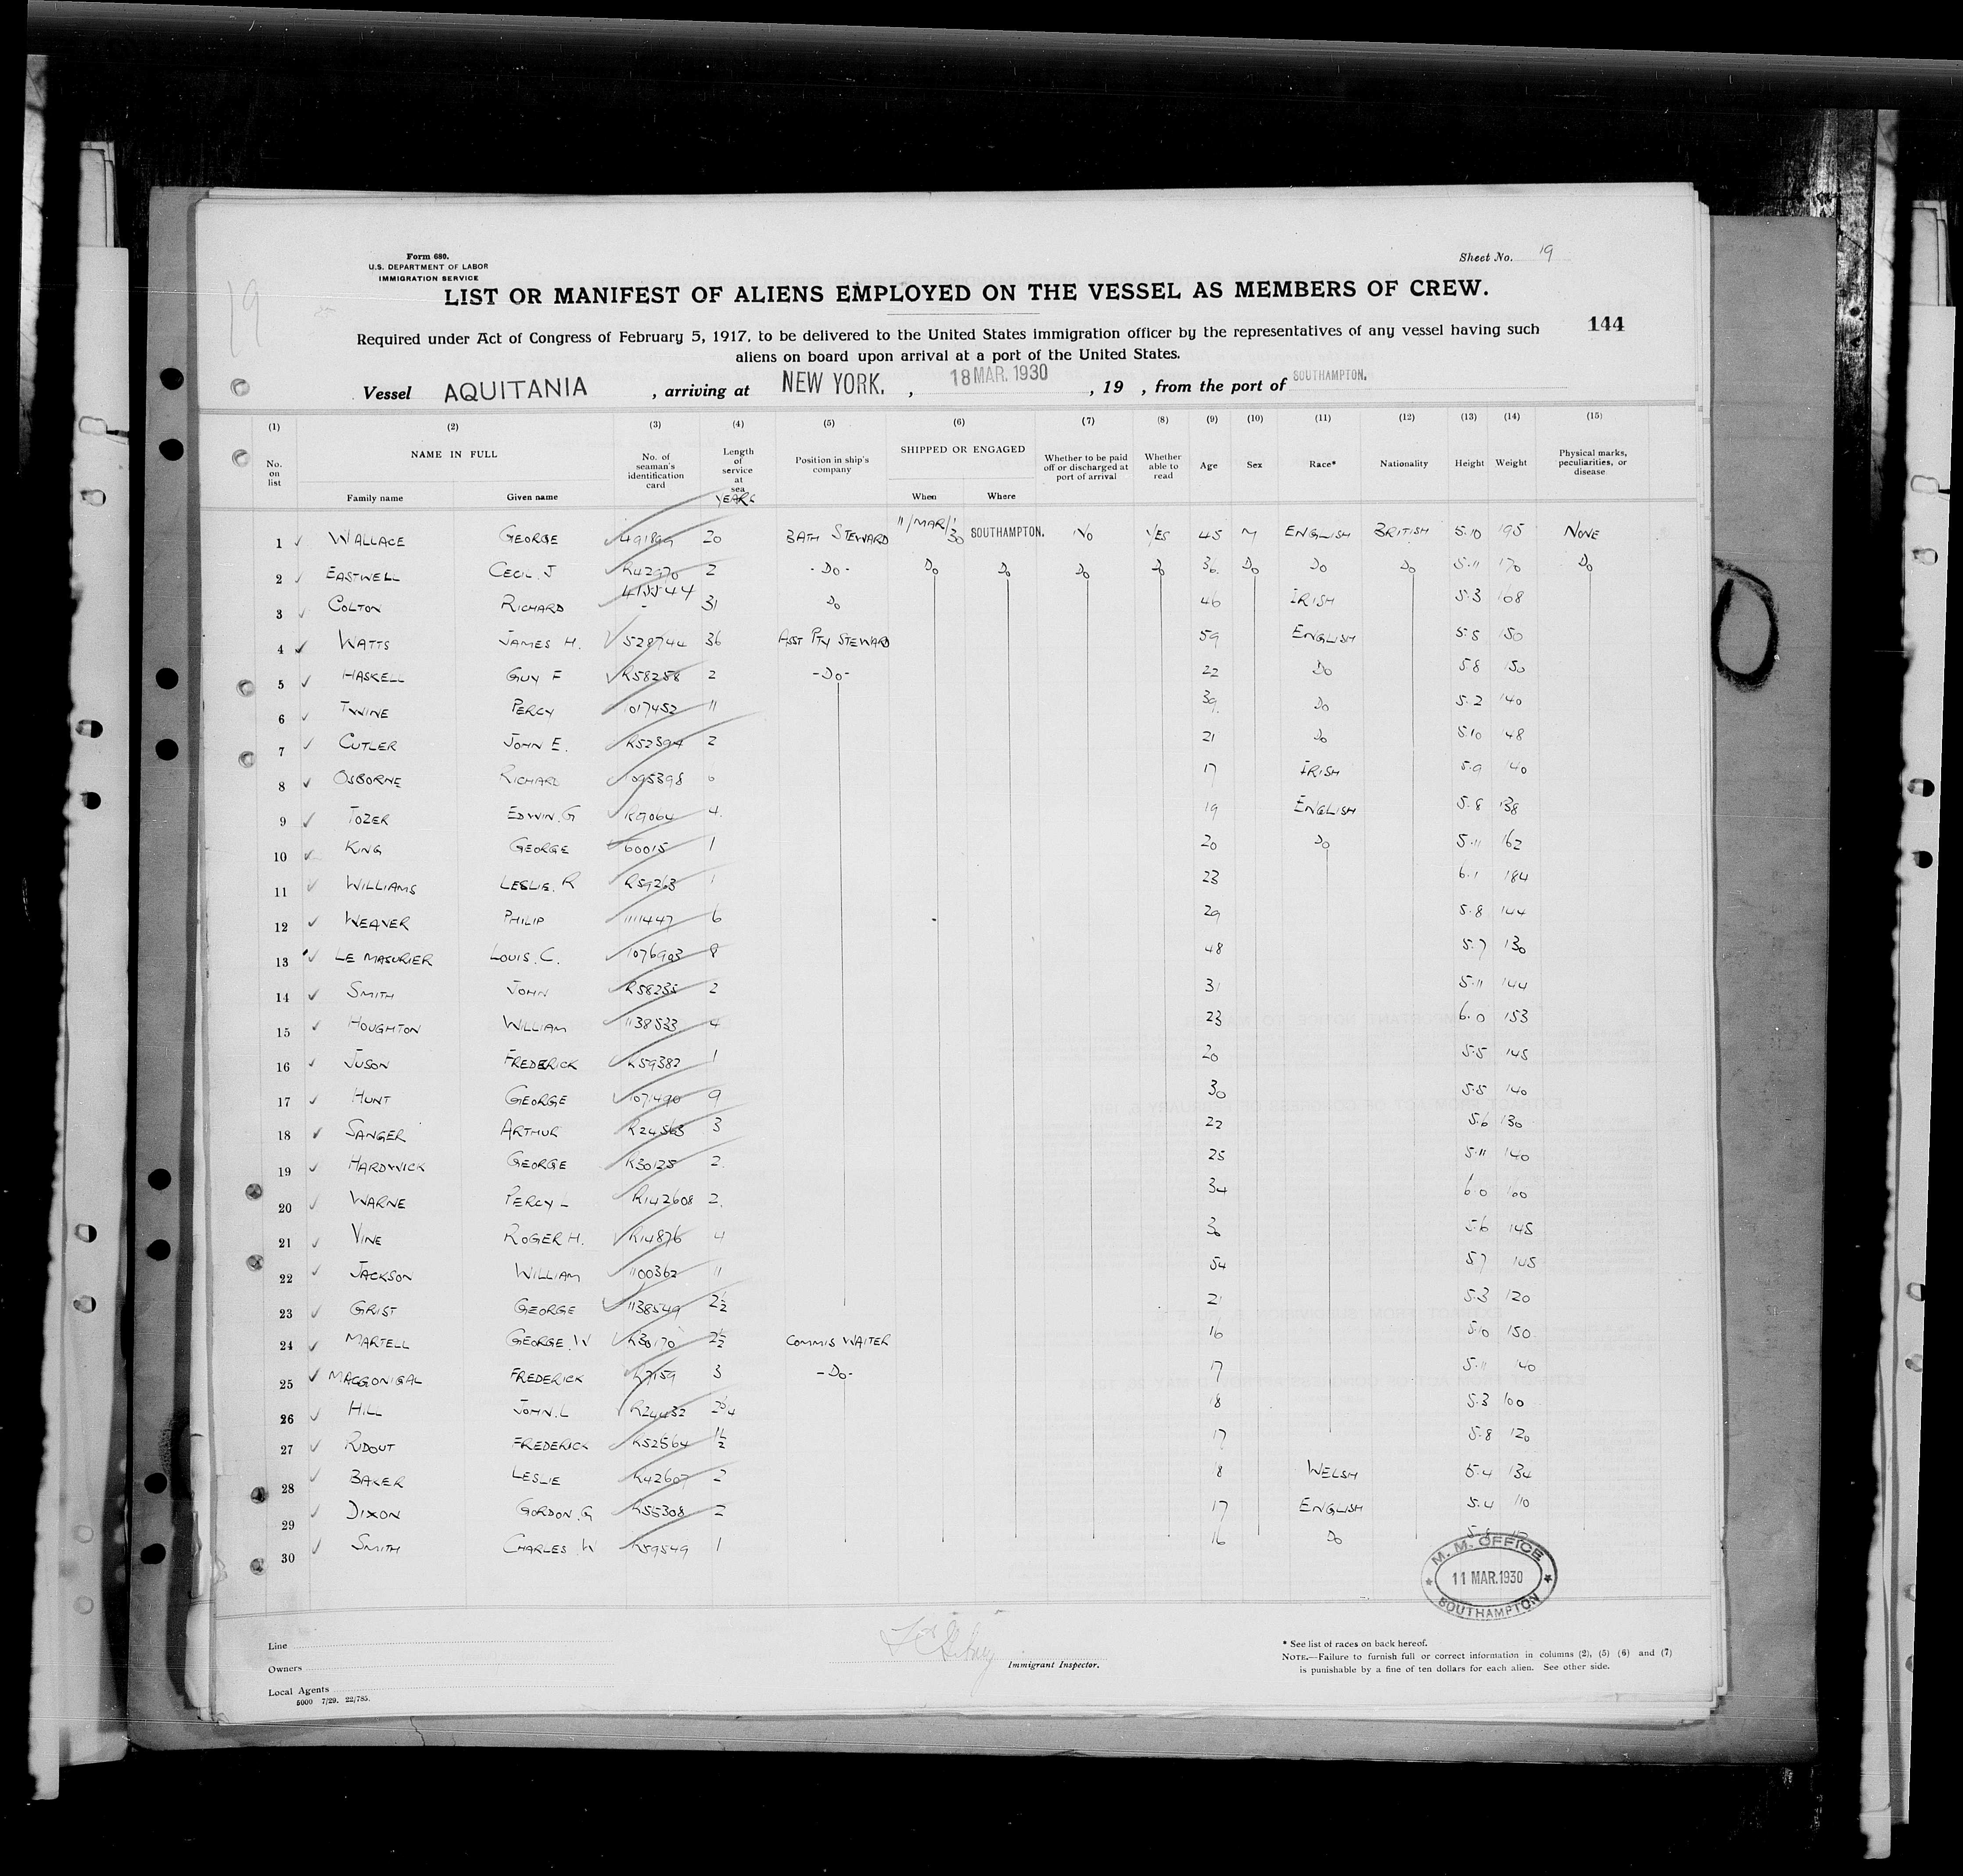 Form 680.
U.S. DEPARTMENT OF LABOR
IMMIGRATION SERVICE
Sheet No. 19
19
LIST OR MANIFEST OF ALIENS EMPLOYED ON THE VESSEL AS MEMBERS OF CREW.
144
Required under Act of Congress of February 5, 1917, to be delivered to the United States immigration officer by the representatives of any vessel having such
aliens on board upon arrival at a port of the United States.
Vessel AQUITANIA , arriving at NEW YORK. , 18 MAR. 1930 , 19 , from the port of SOUTHAMPTON.
(1) (2) (3) (4) (5) (6) (7) (8) (9) (10) (11) (12) (13) (14) (15)
No. on list NAME IN FULL Family name Given name No. of seaman's identification card Length of service at sea YEARS Position in ship's company SHIPPED OR ENGAGED When Where Whether to be paid off or discharged at port of arrival Whether able to read Age Sex Race* Nationality Height Weight Physical marks, peculiarities, or disease
1 WALLACE GEORGE 491899 20 BATH STEWARD 11/MAR/30 SOUTHAMPTON. NO YES 45 M ENGLISH BRITISH 5.10 195 NONE
2 EASTWELL CECIL J R42970 2 -DO- DO DO DO DO 36 DO DO DO 5.11 170 DO
3 COLTON RICHARD 415544 31 DO 46 IRISH 5.3 108
4 WATTS JAMES H. 528744 36 ASST PTY STEWARD 59 ENGLISH 5.5 150
5 HASKELL GUY F R58258 2 -DO- 22 DO 5.8 150
6 TWINE PERCY 1017452 11 39 DO 5.2 140
7 CUTLER JOHN E. R52394 2 21 DO 5.10 148
8 OSBORNE RICHARD 1095398 17 IRISH 5.9 140
9 TOZER EDWIN.G R9064 4 19 ENGLISH 5.8 138
10 KING GEORGE 60015 1 20 DO 5.11 162
11 WILLIAMS LESLIE.R R59263 1 23 6.1 184
12 WEAVER PHILIP 1111447 6 29 5.8 144
13 LE MASURIER LOUIS.C. 1076903 8 48 5.7 130
14 SMITH JOHN R58235 2 31 5.11 144
15 HOUGHTON WILLIAM 1138533 4 23 6.0 153
16 JUSON FREDERICK R59382 1 20 5.5 145
17 HUNT GEORGE 1071490 9 30 5.5 140
18 SANGER ARTHUR R24563 3 22 5.6 130
19 HARDWICK GEORGE R30125 2 25 5.11 140
20 WARNE PERCY L R142608 2 34 6.0 160
21 VINE ROGER H. R14876 4 30 5.6 145
22 JACKSON WILLIAM 1100362 11 54 5.7 145
23 GRIST GEORGE 1138549 2½ 21 5.3 120
24 MARTELL GEORGE.W R30170 2½ COMMIS WAITER 16 5.10 150
25 MACGONIGAL FREDERICK R7159 3 -DO- 17 5.11 140
26 HILL JOHN.L R24432 18 5.3 100
27 RIDOUT FREDERICK R52564 1½ 17 5.8 120
28 BAKER LESLIE R42607 2 18 WELSH 5.4 134
29 DIXON GORDON.G R55308 2 17 ENGLISH 5.4 110
30 SMITH CHARLES.W R59549 1 16 DO
M. M. OFFICE
11 MAR.1930
SOUTHAMPTON
Line
Owners
Local Agents
5000 7/29. 22/785.
Immigrant Inspector.
* See list of races on back hereof.
NOTE.—Failure to furnish full or correct information in columns (2), (5) (6) and (7)
is punishable by a fine of ten dollars for each alien. See other side.